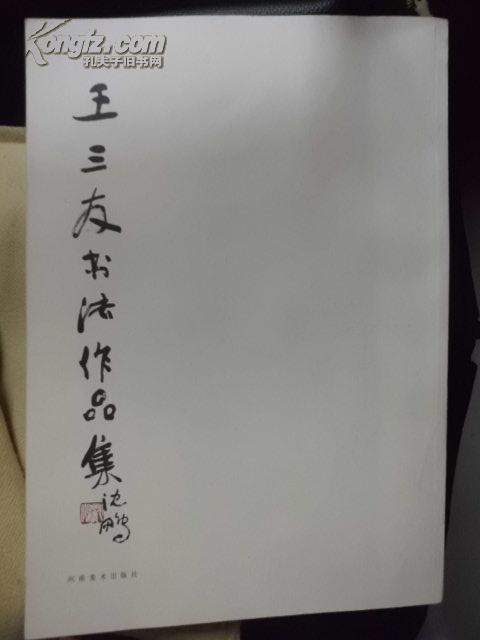 Kongfz.com
孔夫子旧书网
王三友书法作品集
沈鹏
河南美术出版社